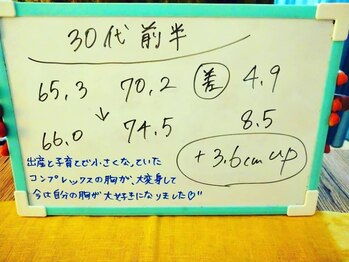 30代前半
65.3 70.2 差 4.9
↓
66.0 74.5 8.5
+3.6cm up
出産と子育てで小さくなっていた
コンプレックスの胸が、大変身して
今は自分の胸が大好きになりました♡"